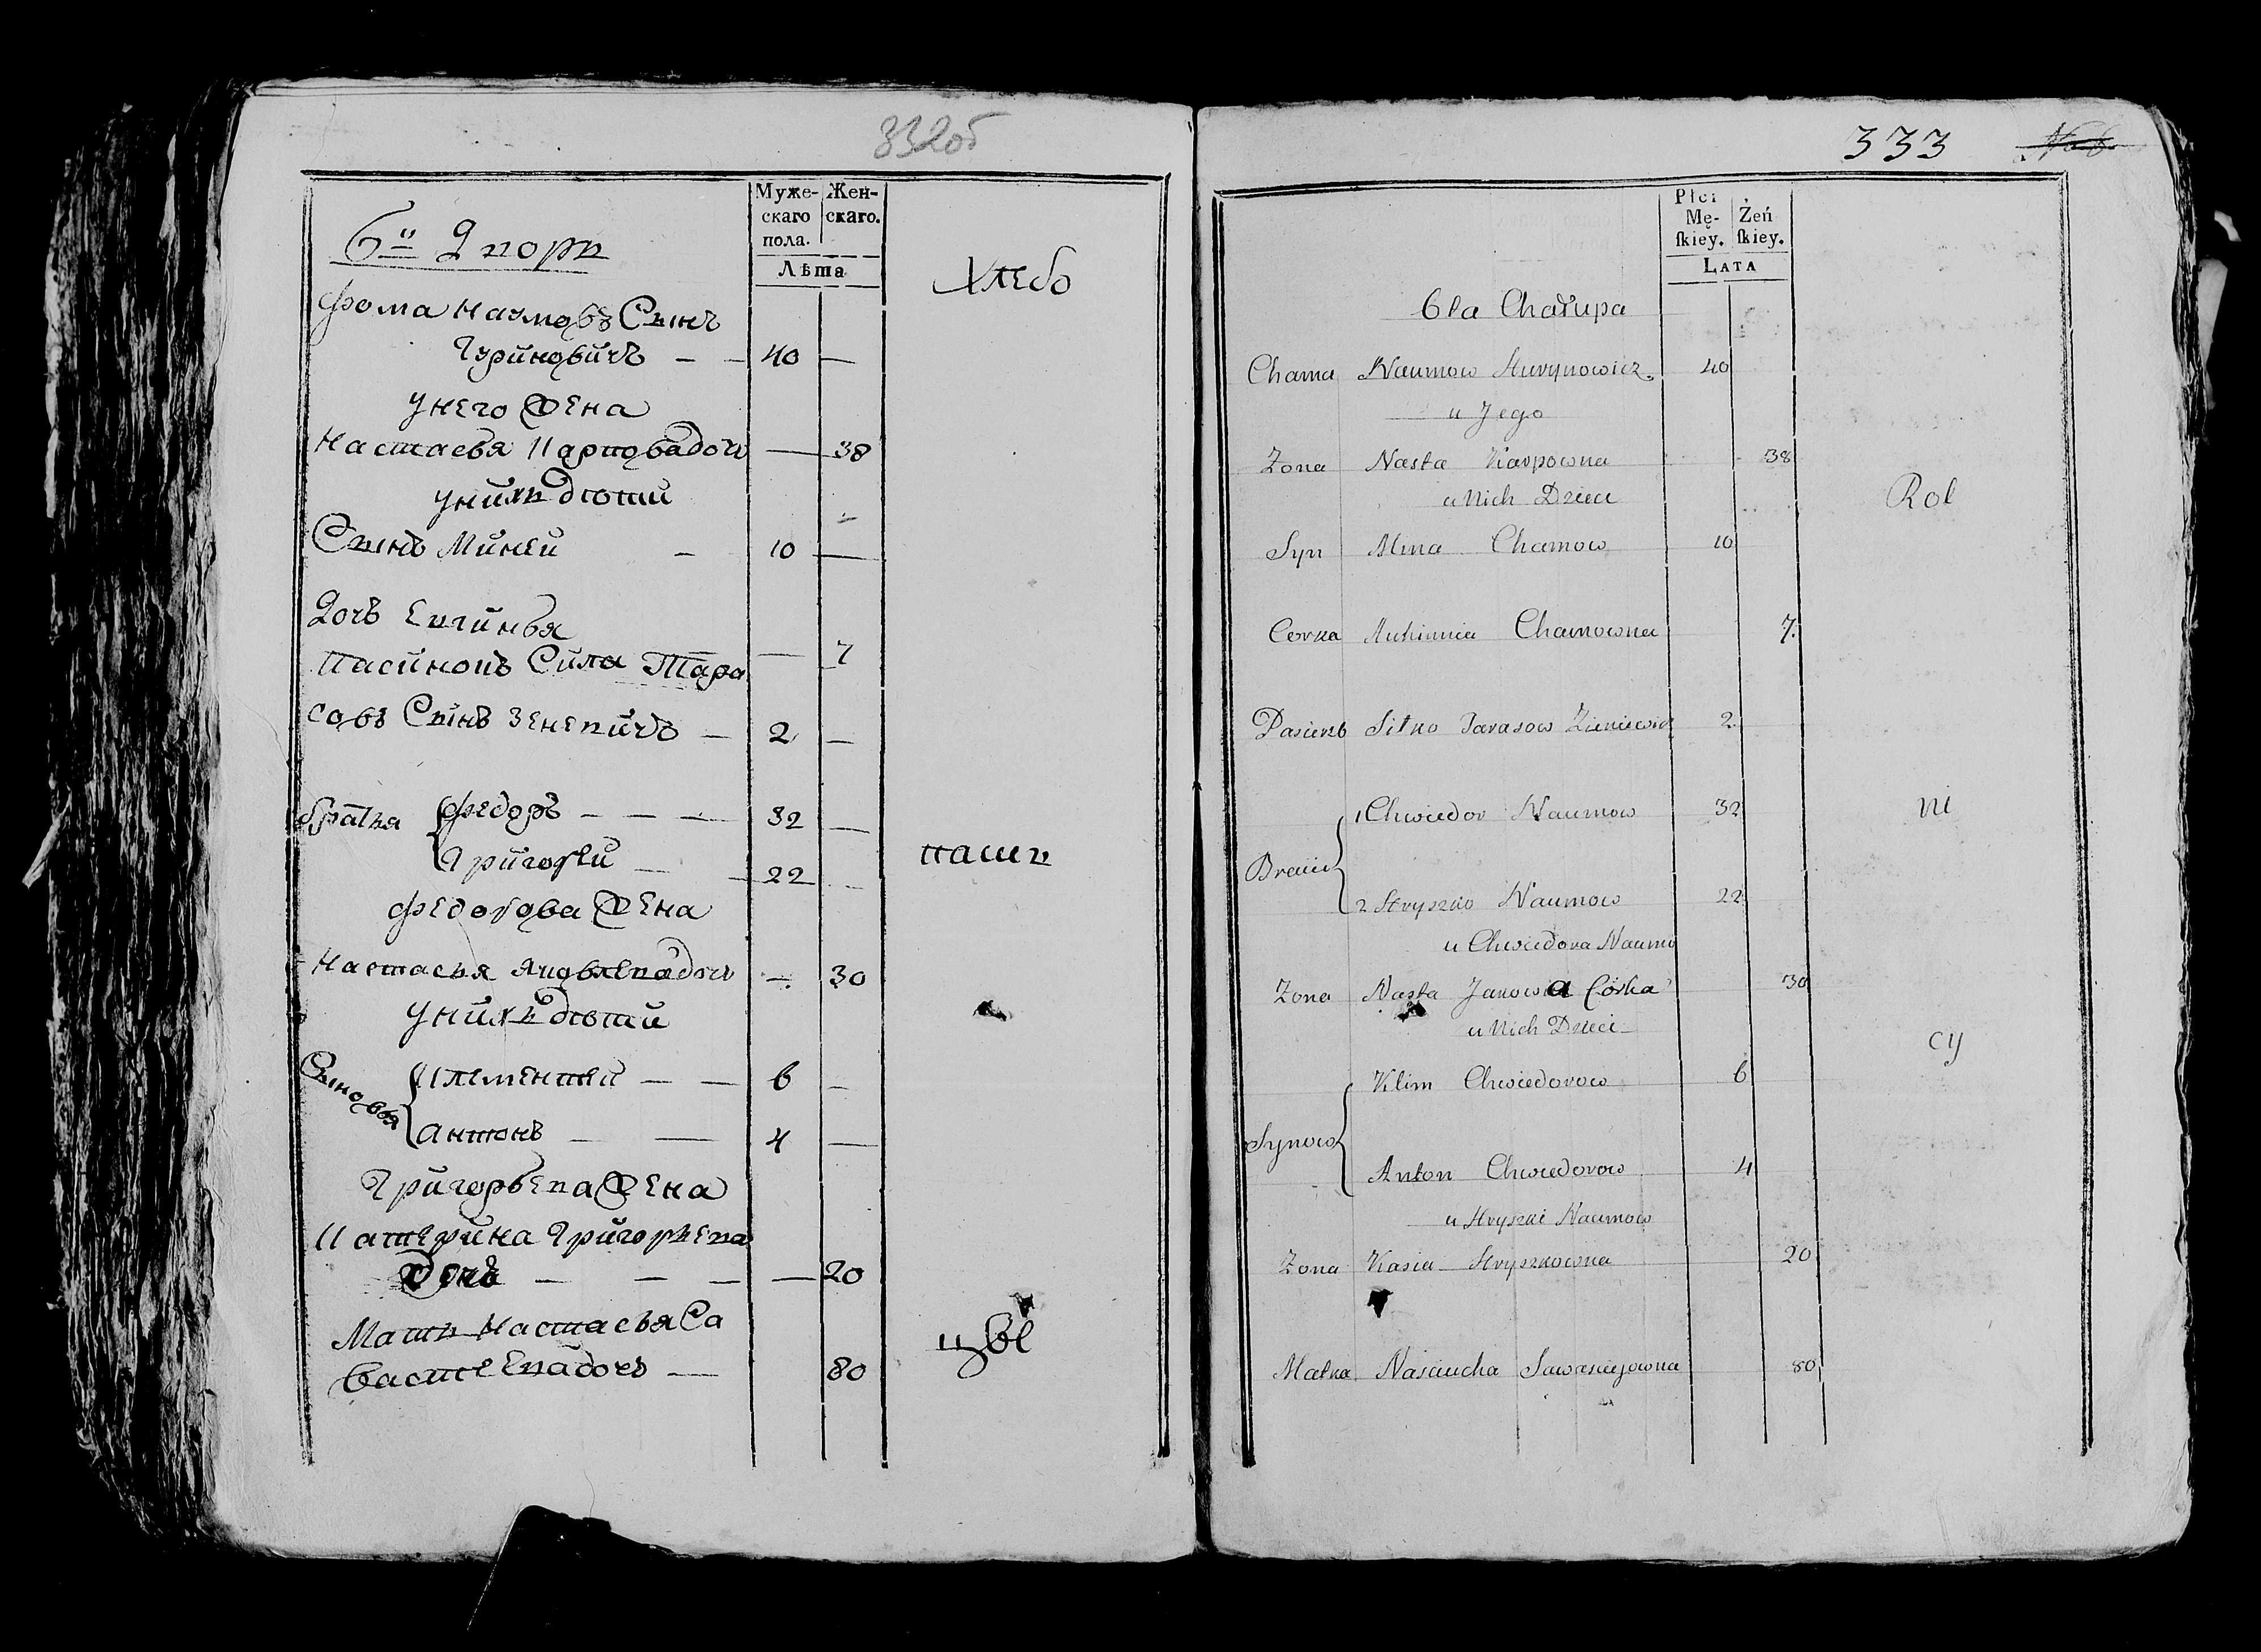 332об
Муже-
скаго
пола.
Жен-
скаго.
Лѣта
6й Дворъ
Хлебо
Фома Наумовъ Сынъ
Гуриновичъ — — 40 —
унего Жена
Настасья Карповадочь — 38
унихъ дѣти
Сынъ Миней — 10 —
Дочь Евгинья
— 7
Пасинокъ Сила Тара
совъ Сынъ Зеневичъ — 2 —
братья Федоръ — — — 32 —
Григорѣй — 22 —
паш
Федорова Жена
Настасья Яковлевадочь — 30
унихъ дѣти
Сыновья Клементѣй — — 6 —
Антонъ — — 4 —
Григорьева Жена
Катерина Григорьева
Дочь — — — — 20
Мать Настасья Са
вастеевадочь — 80
цы
333
No 6.
Płci
Mę-
ſkiey.
Żeń
ſkiey.
Lata
6ta Chałupa
Chama Naumow Hurynowicz 40
u Jego
Zona Nasta Karpowna 38
u Nich Dzieci
Rol
Syn Mina Chamow 10
Corka Auhinnia Chamowna 7.
Pasierb Siłko Tarasow Zieniewicz 2
1 Chwiedor Naumow 32
ni
Bracia
2 Hryszko Naumow 22
u Chwiedora Naumo
Zona Nasta Janowa Córka 30
u Nich Dzieci
cy
Klim Chwiedorow 6
Synow
Anton Chwiedorow 4
u Hryszki Naumow
Zona Kasia Hryszkowna 20
Matka Naściucha Sawasciejowna 80